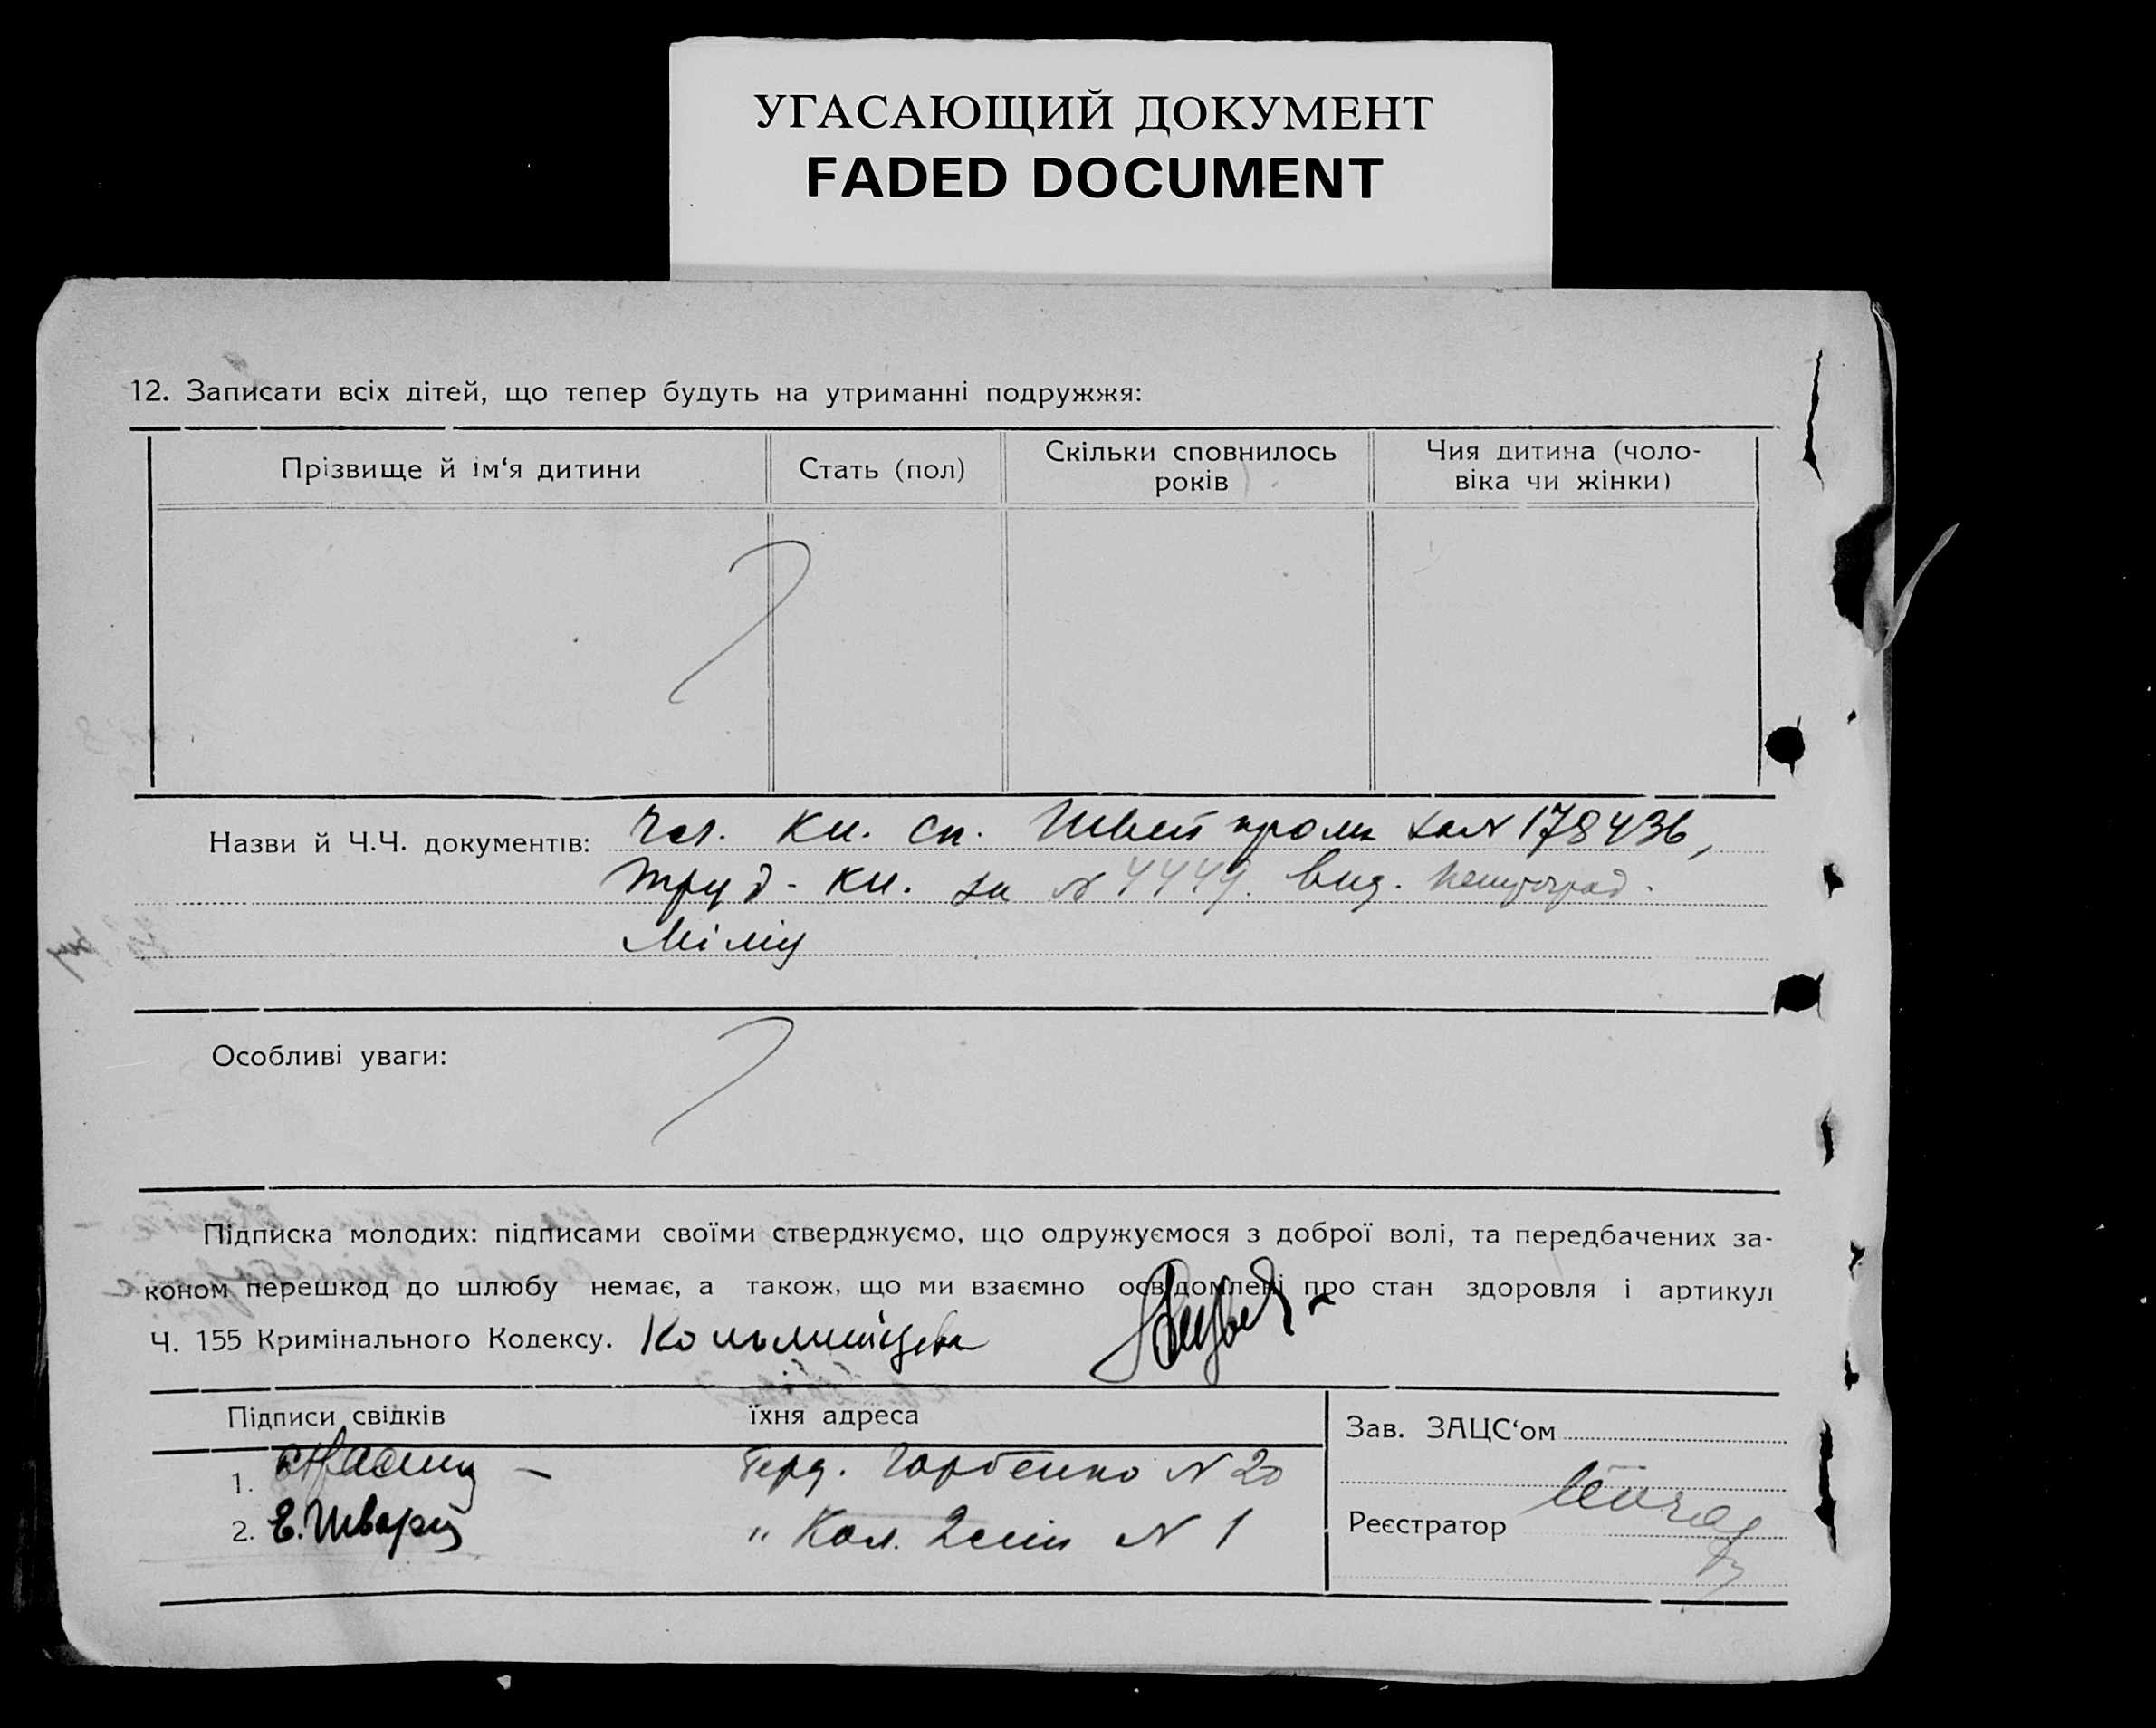 УГАСАЮЩИЙ ДОКУМЕНТ
FADED DOCUMENT
12. Записати всіх дітей, що тепер будуть на утриманні подружжя:
Прізвище й ім‘я дитини
Стать (пол)
Скільки сповнилось
років
Чия дитина (чоло-
віка чи жінки)
Назви й Ч.Ч. документів: Чл. кн. сп. Швейпром за № 178436,
труд. кн. за № 4449. вид.
Міліц
Особливі уваги:
Підписка молодих: підписами своїми стверджуємо, що одружуємося з доброї волі, та передбачених за-
коном перешкод до шлюбу немає, а також, що ми взаємно освідомлені про стан здоровля і артикул
Ч. 155 Кримінального Кодексу.
Підписи свідків
їхня адреса
1. Горбенко № 20
2. Е. Шварц " Кол. № 1
Зав. ЗАЦС‘ом
Реєстратор